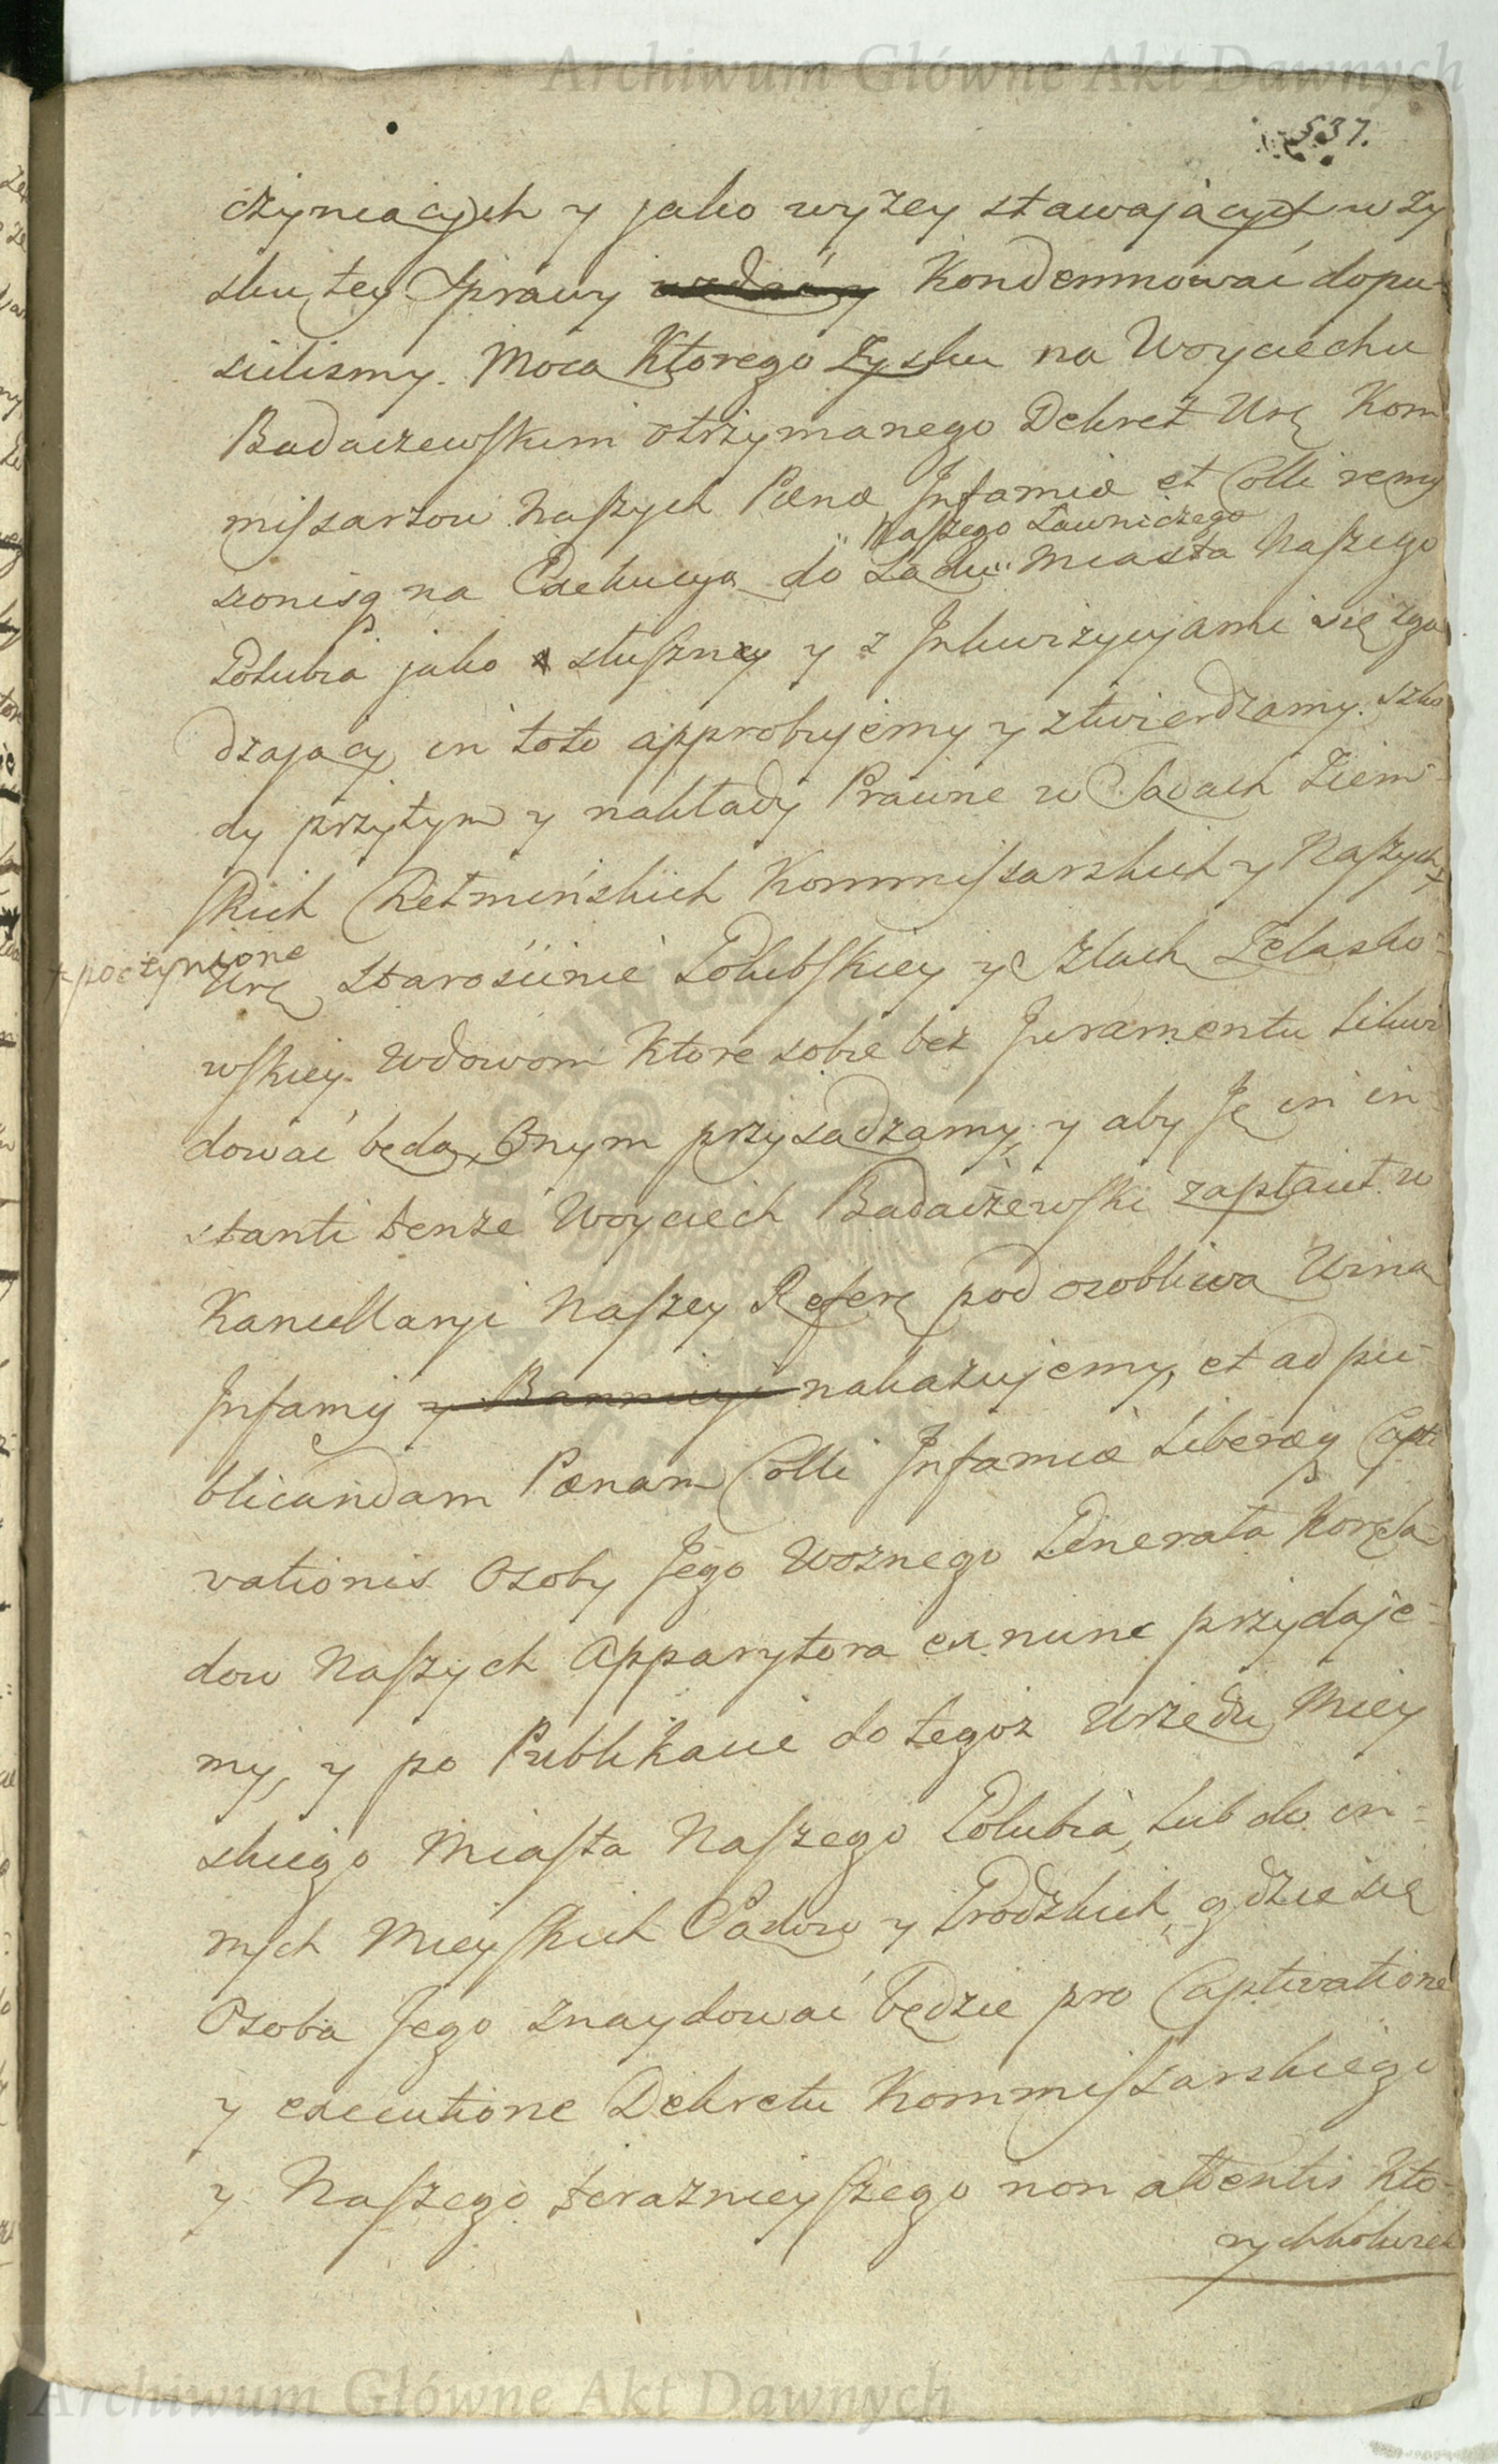 Archiwum Główne Akt Dawnych
537.
czyniących y jako wyzey stawających w Zy
sku tey Sprawy Kondemnować dopu-
scilismy. Mocą Ktorego Zysku na Woyciechu
Badaczewskim otrzymanego Dekret Urę Kom
missarzow Naszych Pœna Infamiæ et Colli remi
Naszego Ławniczego
szonisą na Exekucyą do Sądu Miasta Naszego
Golubia jako słuszny y z Inkwizycyjami się zga
dzający in toto approbujemy y ztwierdzamy. Szko
dy przytym y nakłady Prawne w Sądach Ziem-
skich Kommissarskich y Naszych
+ poczynione
Urę Starościnie Golubskiey y Szlach Żelasko-
wskiey Wdowom Ktore sobie bez Juramentu likwi
dować będą, Onym przysądzamy, y aby Ję in in-
stanti tenze Woyciech Badaczewski zapłacił w
Kancellaryi Naszey Referę pod osobliwą Winą
Infamij y Bannicyi nakazujemy, et ad pu-
blicandam Pœnam Colli Infamiæ Liberæq Capti
vationis Osoby Jego Woznego Generała
dow Naszych Apparytora ex nunc przydaje-
my, y po Publikacie do tegoz Urzędu Miey
skiego Miasta Naszego Golubia, lub do in-
nych Mieyskich Sądow y Grodzkich, gdzie się
Osoba Jego znaydować będzie pro Captivatione
y executione Dekretu Kommissarskiego
y Naszego teraznieyszego non attentis Kto-
rychkolwiek
Archiwum Główne Akt Dawnych